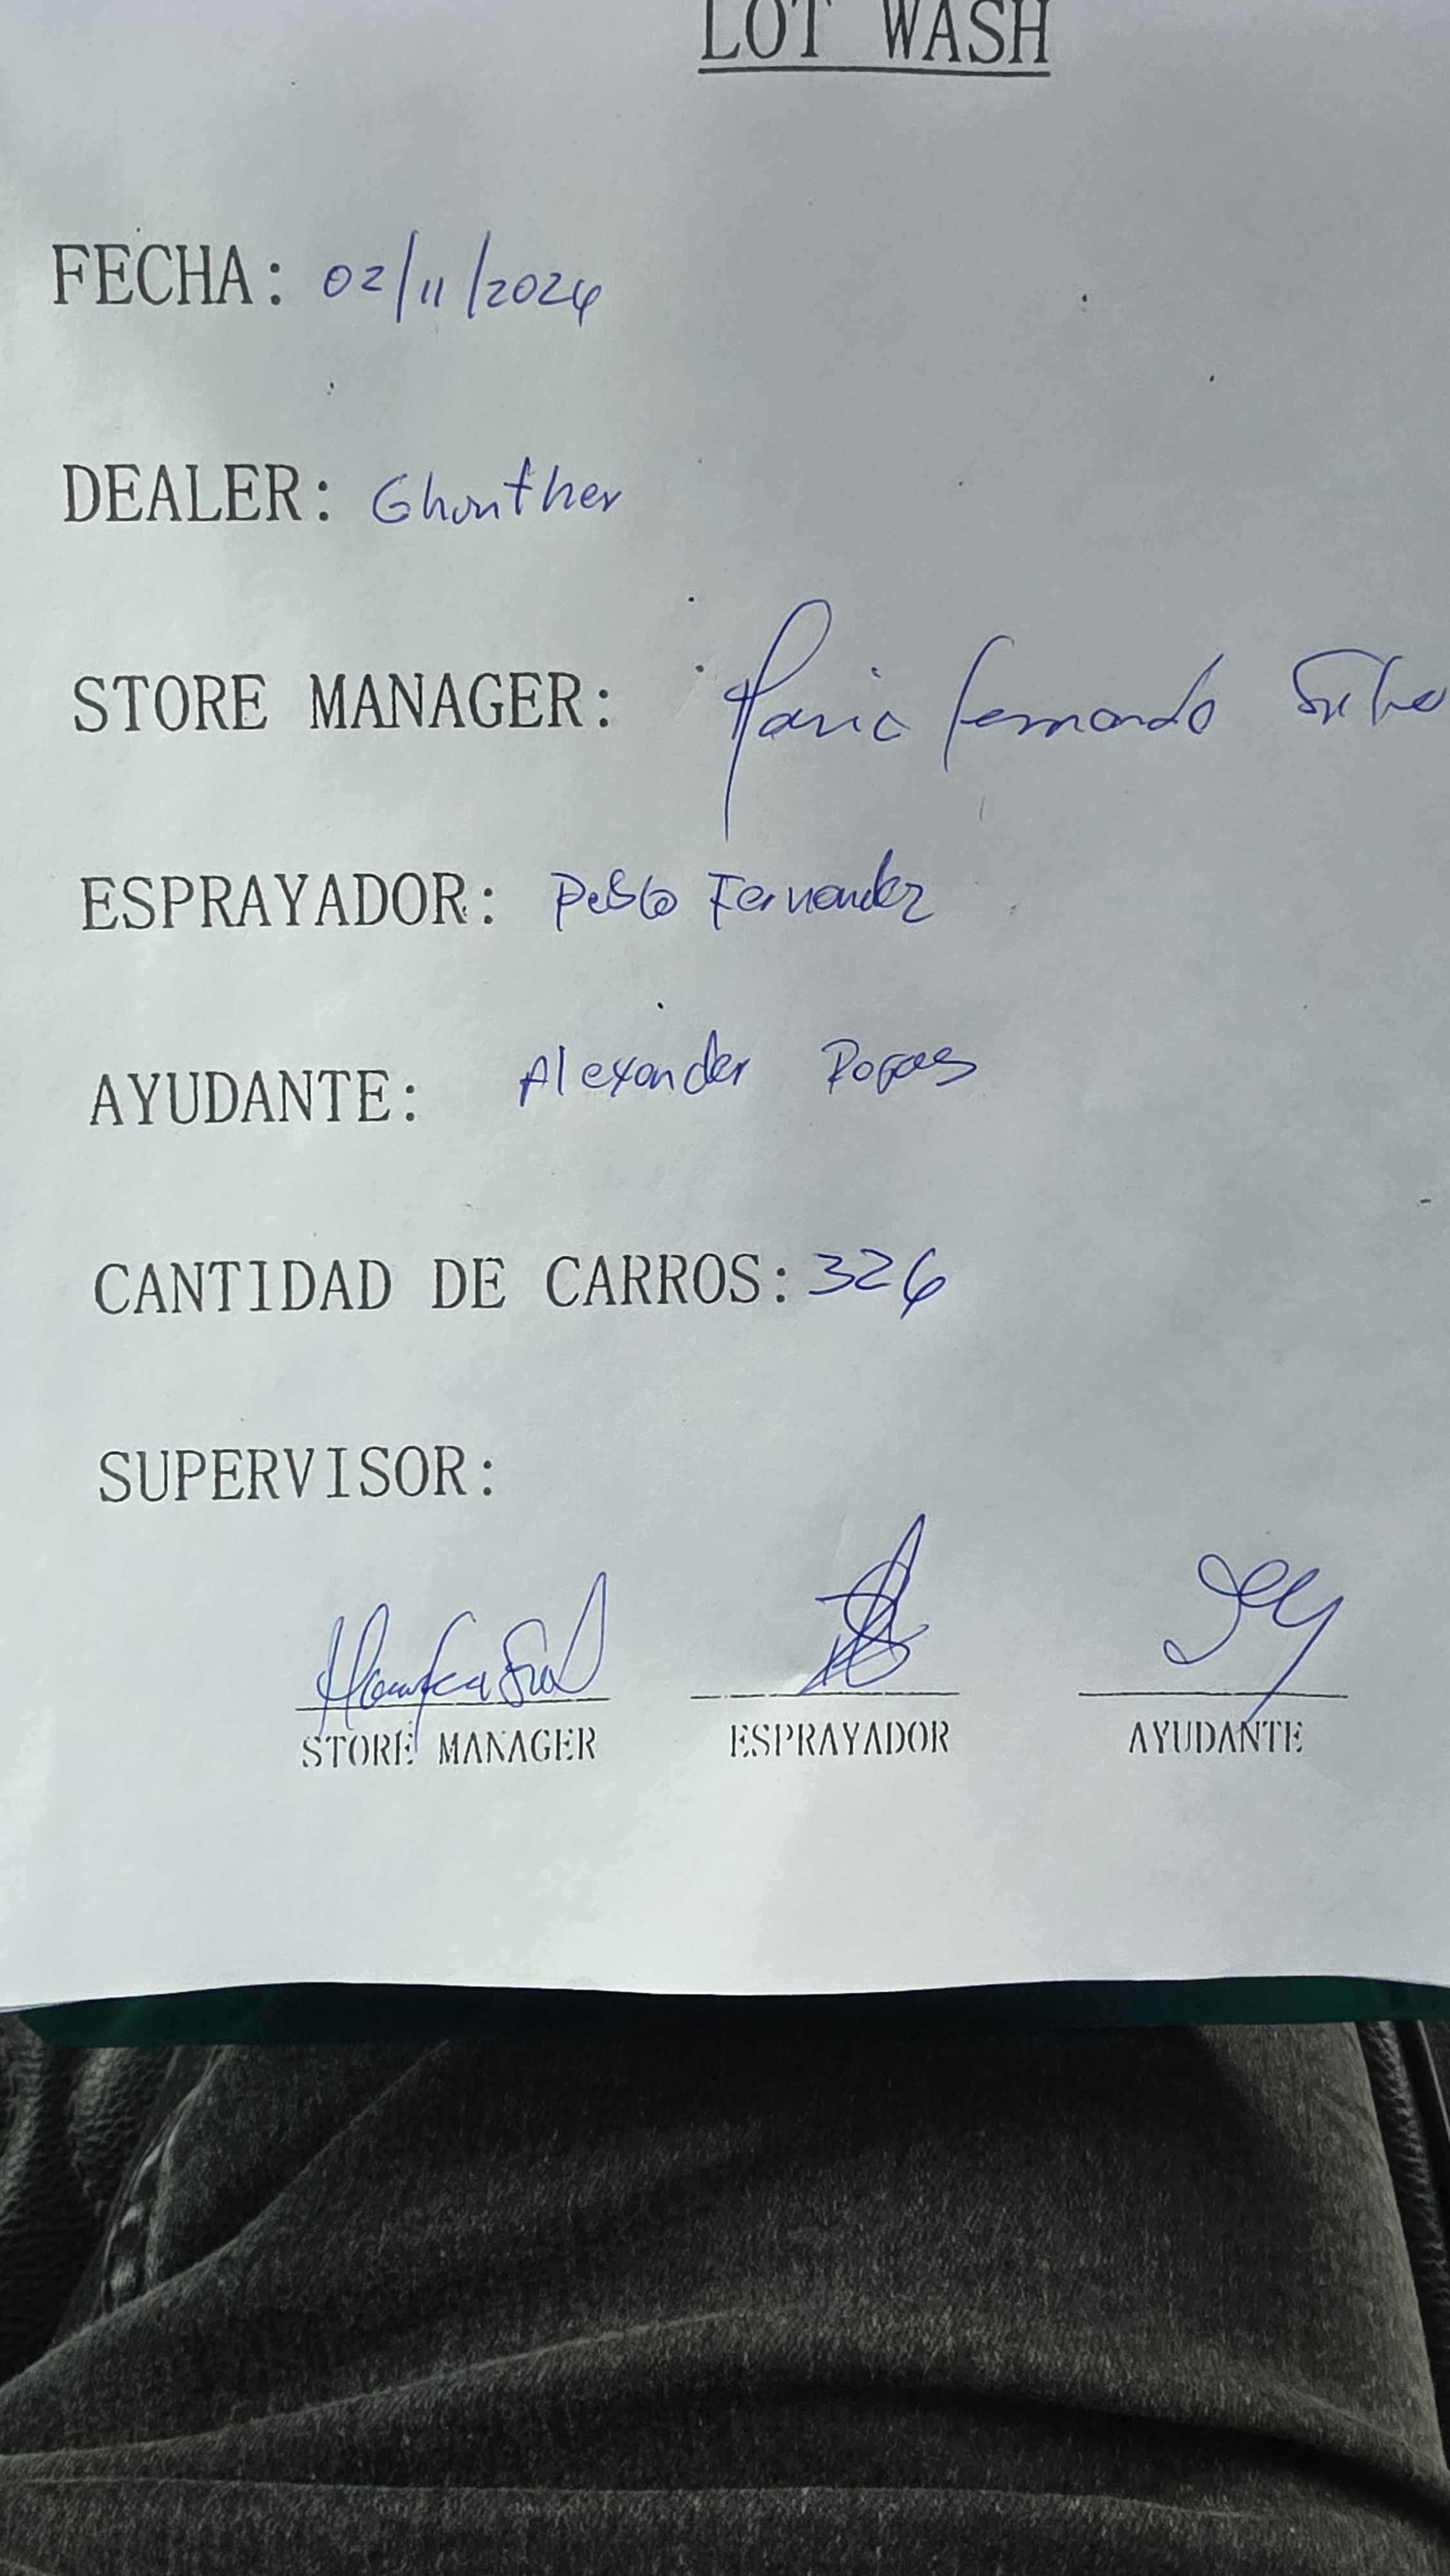 LOT WASH
FECHA: 02/11/2024
DEALER: Ghunther
STORE MANAGER: Maria Fernanda
ESPRAYADOR: Pablo Fernandez
AYUDANTE: Alexander
CANTIDAD DE CARROS: 326
SUPERVISOR:
STORE MANAGER ESPRAYADOR AYUDANTE